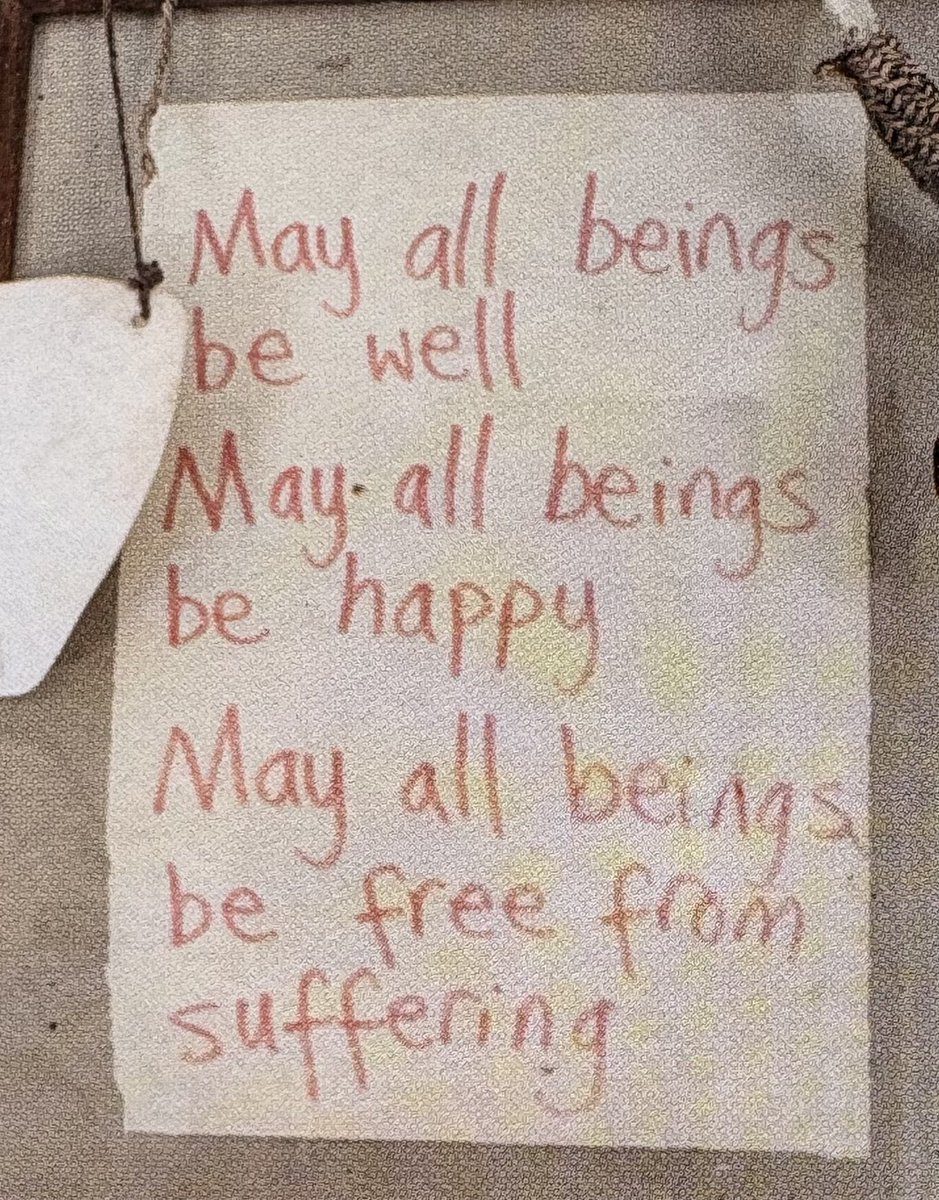 May all beings
be well
May all beings
be happy
May all beings
be free from
suffering